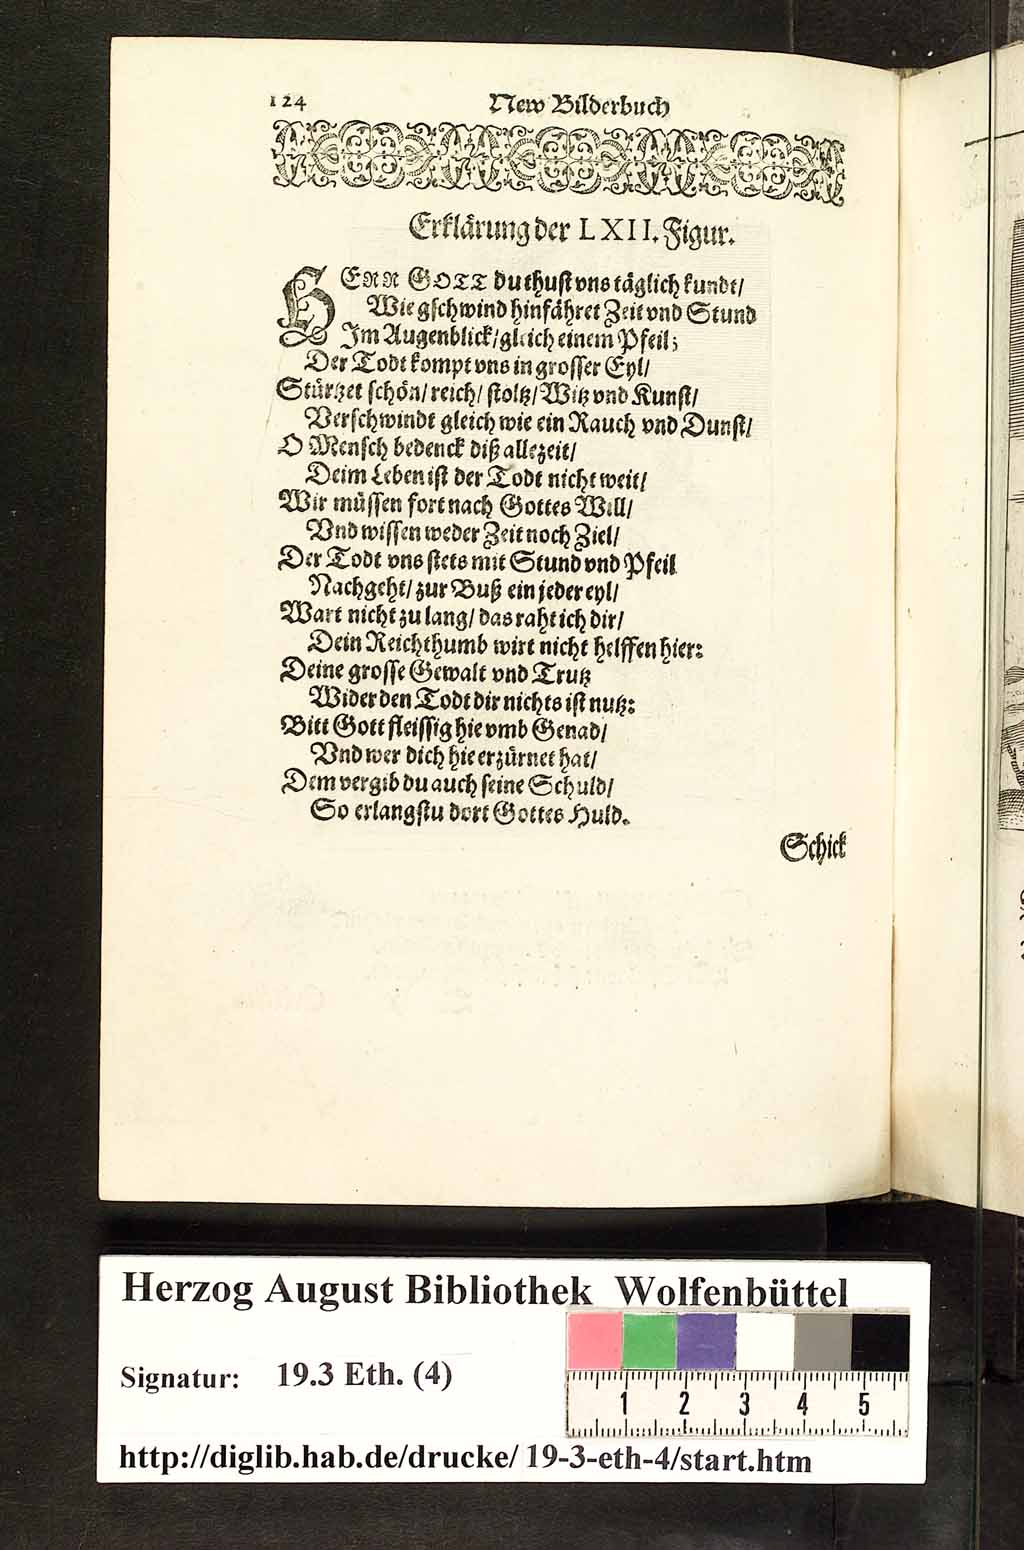 124 New Bilderbuch
Erklärung der LXII. Figur.
HERR GOTT du thust vns täglich kundt/
Wie gschwind hinfähret Zeit vnd Stund
Im Augenblick/ gleich einem Pfeil;
Der Todt kompt vns in grosser Eyl/
Stürtzet schön/ reich/ stoltz/ Witz vnd Kunst/
Verschwindt gleich wie ein Rauch vnd Dunst/
O Mensch bedenck diß allezeit/
Deim Leben ist der Todt nicht weit/
Wir müssen fort nach Gottes Will/
Vnd wissen weder Zeit noch Ziel/
Der Todt vns stets mit Stund vnd Pfeil
Nachgeht/ zur Buß ein jeder eyl/
Wart nicht zu lang/ das raht ich dir/
Dein Reichthumb wirt nicht helffen hier:
Deine grosse Gewalt vnd Trutz
Wider den Todt dir nichts ist nutz:
Bitt Gott fleissig hie vmb Genad/
Vnd wer dich hie erzürnet hat/
Dem vergib du auch seine Schuld/
So erlangstu dort Gottes Huld.
Schick
Herzog August Bibliothek Wolfenbüttel
Signatur: 19.3 Eth. (4)
1 2 3 4 5
http://diglib.hab.de/drucke/ 19-3-eth-4/start.htm